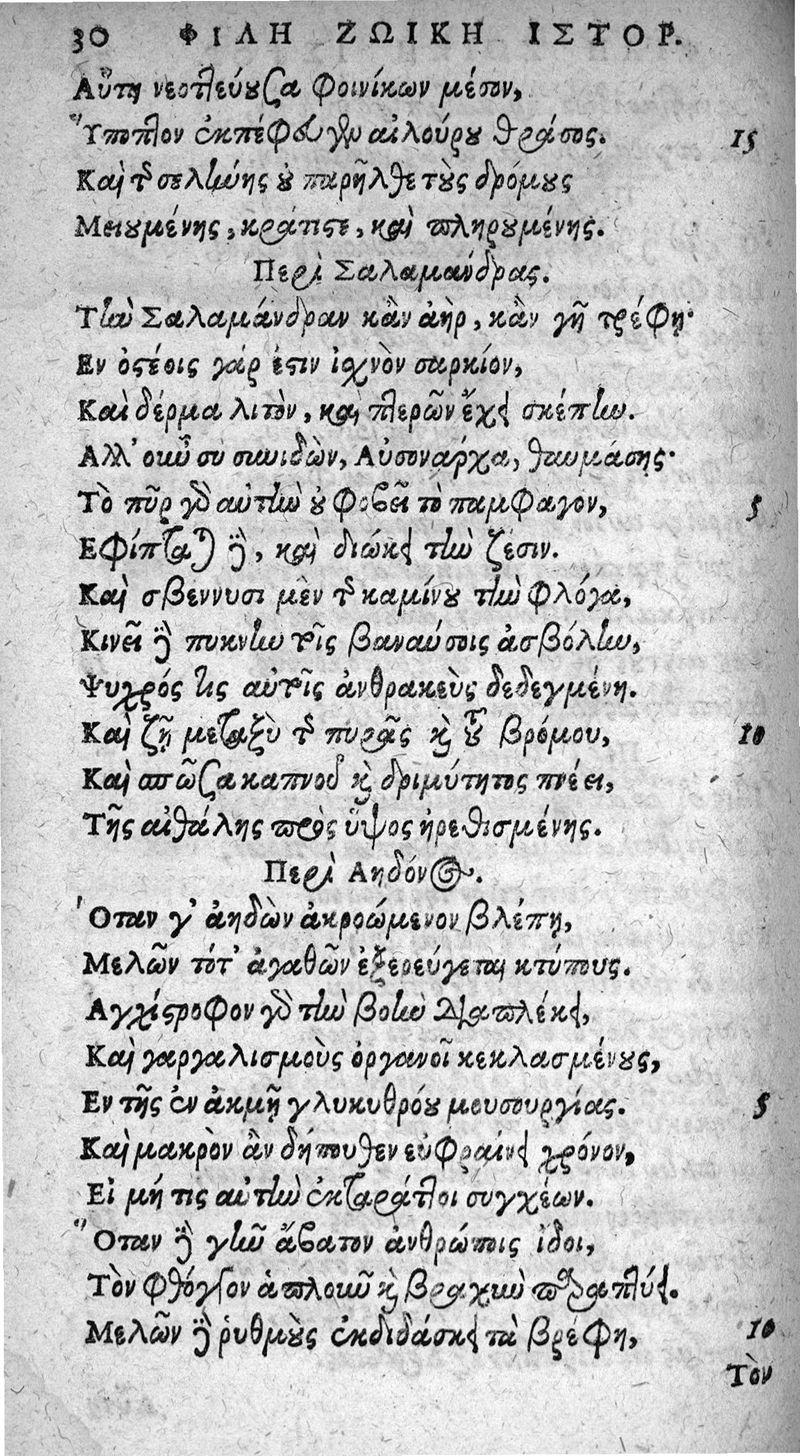 30 ΦΙΛΗ ΖΩΙΚΗ ΙΣΤΟΡ.
Αὕτη νεοττεύουσα φοινίκων μέσον,
Ὕποπτον ἐκπέφευγεν αἰλούρου θράσος. 15
Καὶ τῆς σελήνης οὐ παρῆλθε τοὺς δρόμους
Μειουμένης, κράτιστε, καὶ πληρουμένης.
Περὶ Σαλαμάνδρας.
Τὴν Σαλαμάνδραν κἂν ἀὴρ, κἂν γῆ τρέφῃ·
Εν ὀστέοις γάρ ἐστιν ἰσχνὸν σαρκίον,
Καὶ δέρμα λιτὸν, καὶ πτερῶν ἔχει σκέπην.
Αλλ' οὖν συ συνιδὼν, Αὐσονάρχα, θαυμάσῃς·
Τὸ πῦρ γὰρ αὐτὴν οὐ φοβεῖ τὸ παμφάγον, 5
Εφίπταται δὲ, καὶ διώκει τὴν ζέσιν.
Καὶ σβέννυσι μὲν τῆς καμίνου τὴν φλόγα,
Κινεῖ δὲ πυκνὴν τοῖς βαναύσοις ἀσβόλην,
Ψυχρός τις αὐτοῖς ἀνθρακεὺς δεδεγμένη.
Καὶ ζῇ μεταξὺ τῆς πυρᾶς καὶ τοῦ βρόμου, 10
Καὶ σπῶσα καπνοῦ καὶ δριμύτητος πνέει,
Τῆς αἰθάλης πρὸς ὕψος ἠρεθισμένης.
Περὶ Αηδόνος.
Ὅταν γ' ἀηδὼν ἀκροώμενον βλέπῃ,
Μελῶν τότ' ἀγαθῶν ἐξερεύγεται κτύπους.
Αγχίστροφον γὰρ τὴν βοὴν διαπλέκει,
Καὶ γαργαλισμοὺς ὀργανοῖ κεκλασμένους,
Εν τῆς ἐν ἀκμῇ γλυκυθρόου μουσουργίας. 5
Καὶ μακρὸν ἂν δήπουθεν εὐφραίνει χρόνον,
Εἰ μή τις αὐτὴν ἐκταράττοι συγχέων.
Ὅταν δὲ γῆν ἄβατον ἀνθρώποις ἴδοι,
Τὸν φθόγγον ἁπλοῦν καὶ βραχὺν παραπτύει.
Μελῶν δὲ ῥυθμοὺς ἐκδιδάσκει τὰ βρέφη, 10
Τὸν